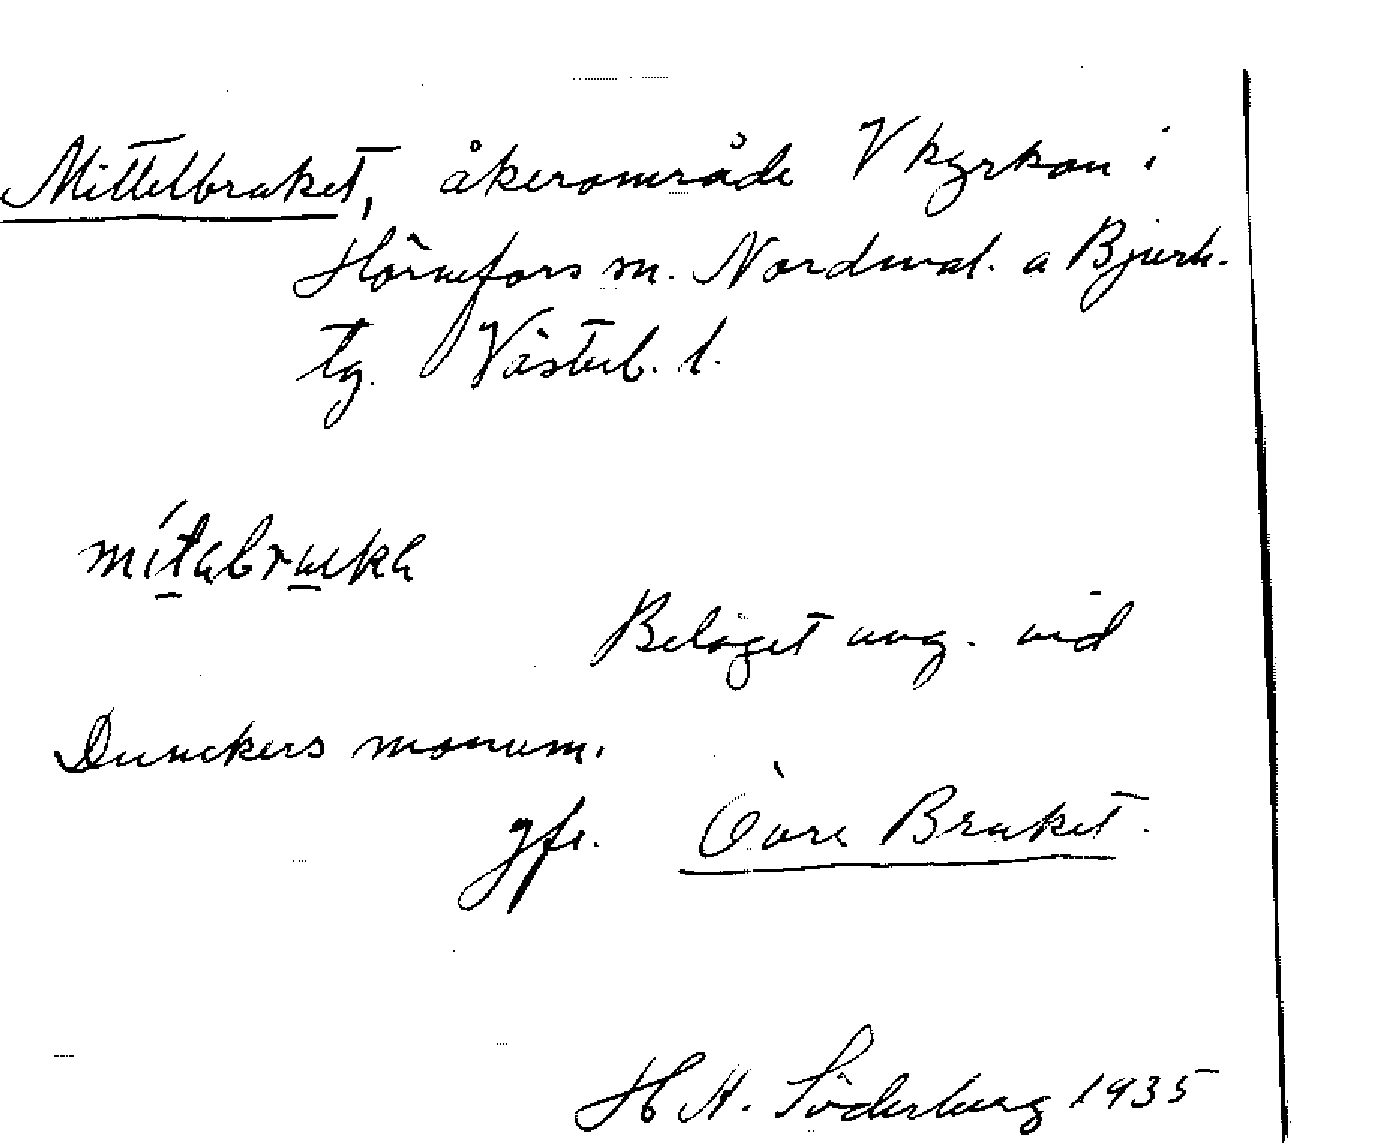 Mittelbruket, åkerområde V kyrkan i
Hörnefors sn. Nordmal. a Bjurh.
tg. Västerb. l.
mítabruka
Beläget ung. vid
Dunckers monum.
jfr. Övre Bruket.
H. Söderberg 1935